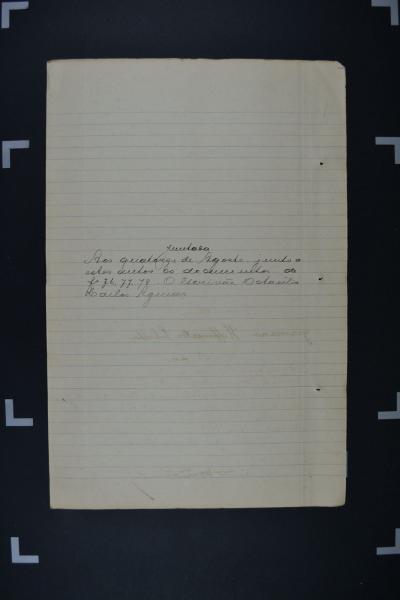 Juntada
Aos quatorze de Agosto junto a
estes autos os documentos de
fs 76, 77, 78. O Escrivão Octavio
Carlos Aguiar